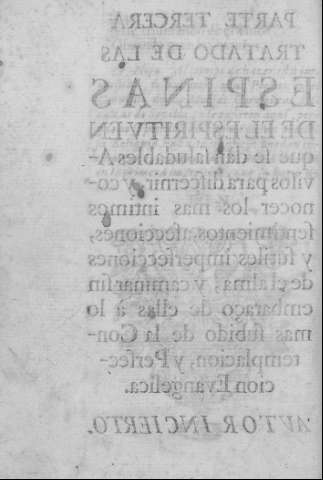 PARTE TERCERA
TRATADO DE LAS
ESPINAS
DE EL ESPIRITV EN
que ſe dàn ſaludables A-
viſos para diſcernir, y co-
nocer los mas intimos
ſentimientos, afecciones,
y ſutiles imperfecciones
de el alma; y caminar ſin
embaraço de ellas à lo
mas ſubido de la Con-
templacion, y Perfec-
cion Evangelica.
AVTOR INCIERTO.